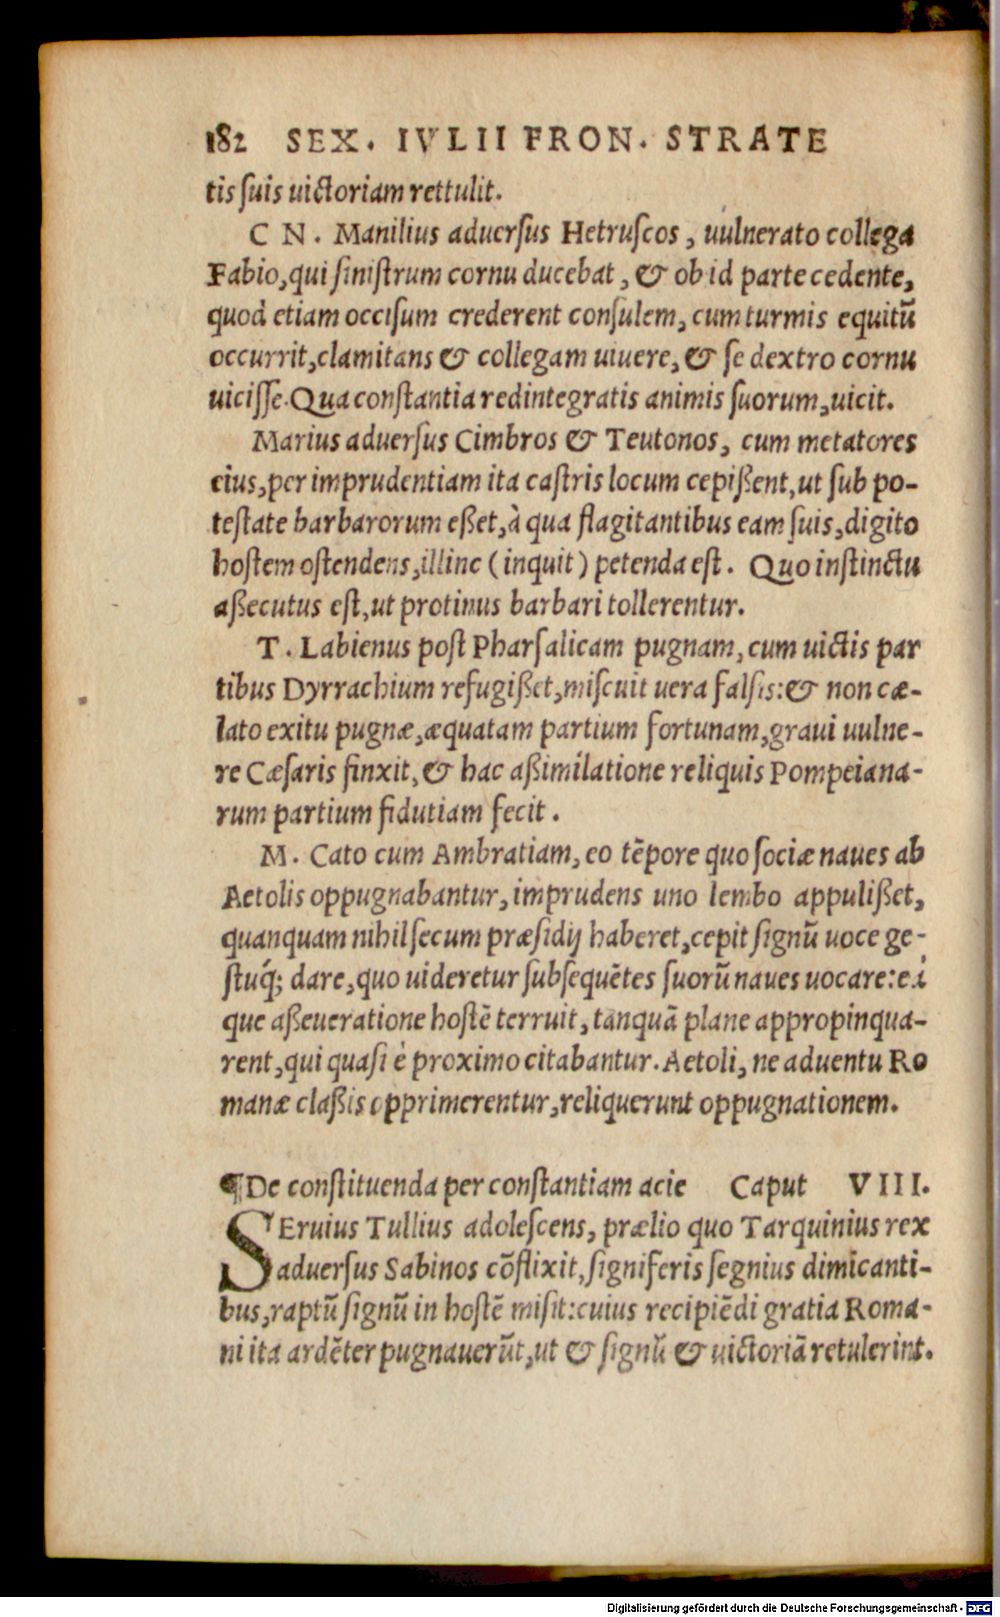 182 SEX. IVLII FRON. STRATE
tis suis uictoriam rettulit.
C N. Manilius aduersus Hetruscos, uulnerato collega
Fabio, qui sinistrum cornu ducebat, & ob id parte cedente,
quod etiam occisum crederent consulem, cum turmis equitũ
occurrit, clamitans & collegam uiuere, & se dextro cornu
uicisse. Qua constantia redintegratis animis suorum, uicit.
Marius aduersus Cimbros & Teutonos, cum metatores
eius, per imprudentiam ita castris locum cepißent, ut sub po-
testate barbarorum eßet, à qua flagitantibus eam suis, digito
hostem ostendens, illinc (inquit) petenda est. Quo instinctu
aßecutus est, ut protinus barbari tollerentur.
T. Labienus post Pharsalicam pugnam, cum uictis par
tibus Dyrrachium refugißet, miscuit uera falsis: & non cæ-
lato exitu pugnæ, æquatam partium fortunam, graui uulne-
re Cæsaris finxit, & hac aßimilatione reliquis Pompeiana-
rum partium fidutiam fecit.
M. Cato cum Ambratiam, eo tẽpore quo sociæ naues ab
Aetolis oppugnabantur, imprudens uno lembo appulißet,
quanquam nihil secum præsidij haberet, cepit signũ uoce ge-
stuq́; dare, quo uideretur subsequẽtes suorũ naues uocare: ei
que aßeueratione hostẽ terruit, tanquã plane appropinqua-
rent, qui quasi è proximo citabantur. Aetoli, ne aduentu Ro
manæ claßis opprimerentur, reliquerunt oppugnationem.
¶De constituenda per constantiam acie Caput VIII.
SEruius Tullius adolescens, prælio quo Tarquinius rex
aduersus Sabinos cõflixit, signiferis segnius dimicanti-
bus, raptũ signũ in hostẽ misit: cuius recipiẽdi gratia Roma-
ni ita ardẽter pugnauerũt, ut & signũ & uictoriã retulerint.
Digitalisierung gefördert durch die Deutsche Forschungsgemeinschaft - DFG